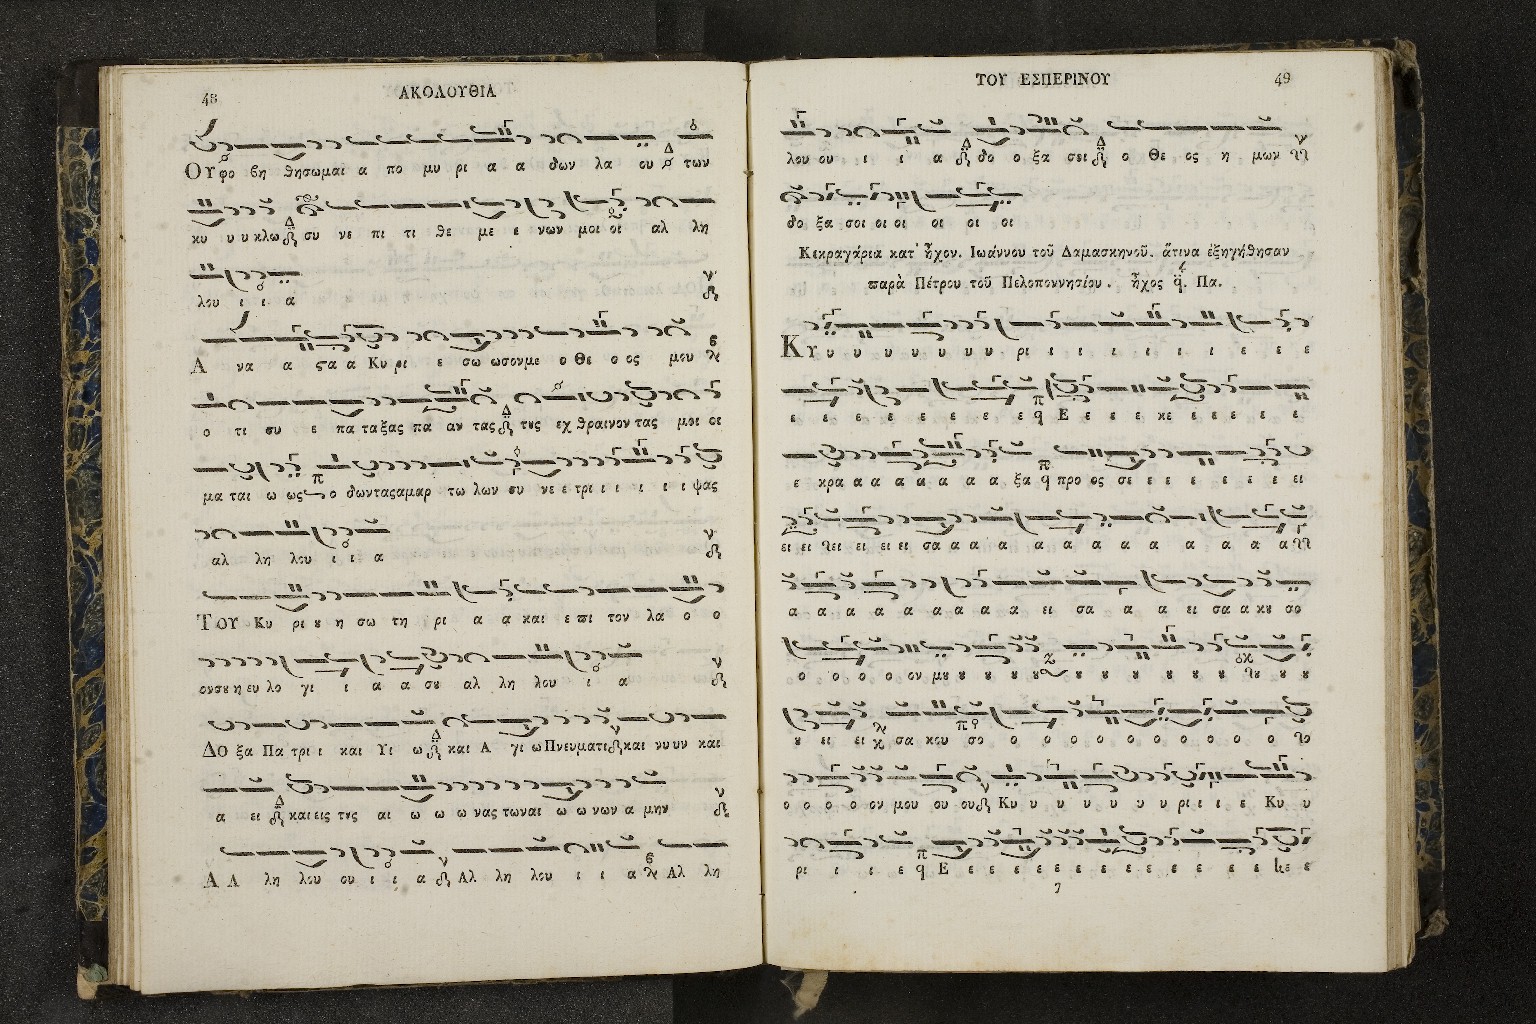 48
ΑΚΟΛΟΥΘΙΑ
ΟΥ φο βη θησωμαι α πο μυ ρι α α δων λα ου των
κυ υ υ κλω συ νε πι τι θε με ε νων μοι οι αλ λη
λου ι ι α
Α να α ςα α Κυ ρι ε σω ωσονμε ο Θε ο ος μου
ο τι συ ε πα ταξας πα αν τας τȣς εχ θραινον τας μοι οι
μα ται ω ως ο δονταςαμαρ τω λων συ νε ε τρι ι ι ι ι ι ψας
αλ λη λου ι ι α
ΤΟΥ Κυ ρι ȣ η σω τη ρι α α και ε πι τον λα ο ο
ονσȣ η ευ λο γι ι α α σȣ αλ λη λου ι α
ΔΟ ξα Πα τρι ι και Υι ω και Α γι ω Πνευματι και νυ υν και
α ει και εις τȣς αι ω ω ω νας των αι ω ω νων α μην
ΑΛ λη λου ου ι ι α Αλ λη λου ι ι α Αλ λη
ΤΟΥ ΕΣΠΕΡΙΝΟΥ
49
λου ου ι ι α δο ο ξα σοι ο Θε ος η μων
δο ξα σοι οι οι οι οι οι
Κεκραγάρια κατ' ἦχον. Ἰωάννου τοῦ Δαμασκηνοῦ. ἅτινα ἐξηγήθησαν
παρὰ Πέτρου τοῦ Πελοποννησίου. ἦχος Πα.
ΚΥ υ υ υ υ υ υ υ ρι ι ι ι ι ι ι ε ε ε
ε ε ε ε ε ε ε ε Ε ε ε ε κε ε ε ε ε ε
ε κρα α α α α α α α ξα προ ος σε ε ε ε ε ε ε ει
ει ει ει ει ει ει σα α α α α α α α α α α α α
α α α α α α α α ει σα α α ει σα α κȣ σο
ο ο ο ο ον μȣ ȣ ȣ ȣ ȣ ȣ ȣ ȣ ȣ ȣ ȣ ȣ ȣ
ȣ ει ει σα κου σο ο ο ο ο ο ο ο ο ο ο
ο ο ο ο ον μου ου ου Κυ υ υ υ υ υ υ ρι ι ι ε Κυ υ
ρι ι ι ε Ε ε ε ε ε ε ε ε ε ε ε ε ε κε ε
7